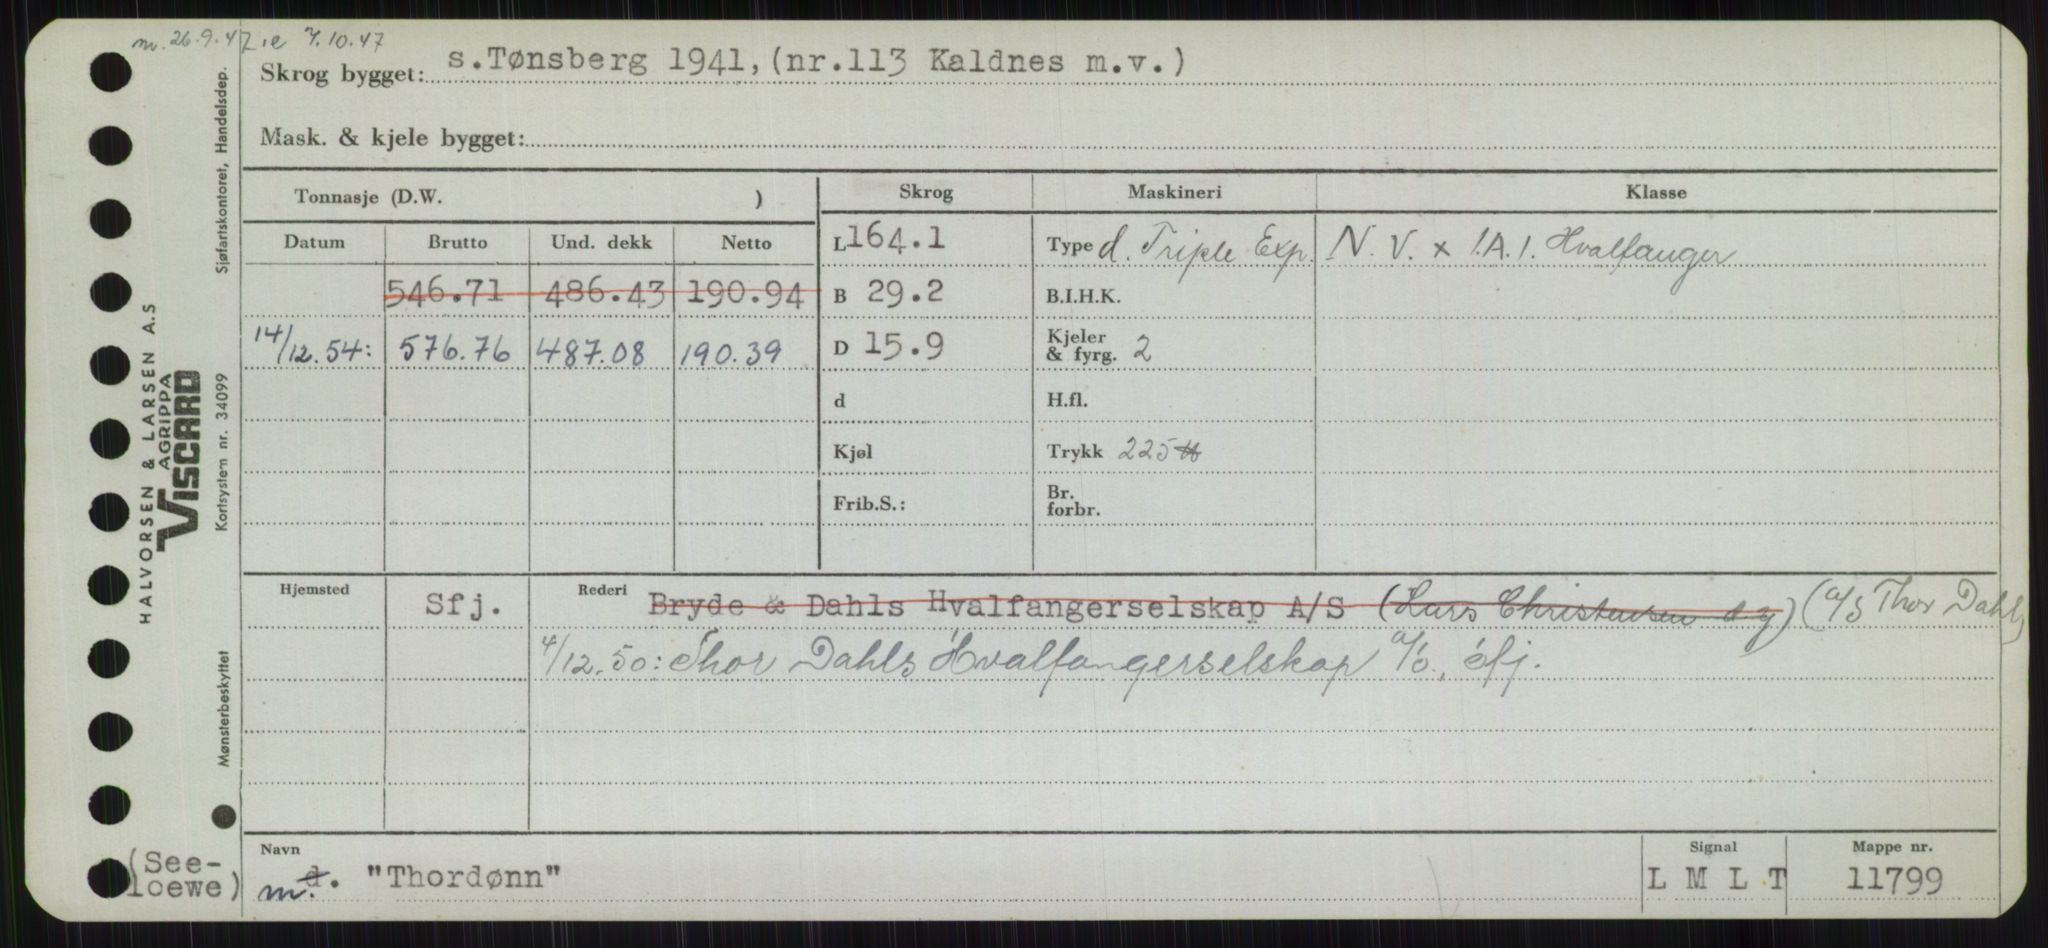 nr. 26.9.47 .e 7.10.47
Skrog bygget: s.Tønsberg 1941, (nr.113 Kaldnes m.v.)
Mask. & kjele bygget:
Tonnasje (D.W. )
Skrog
Maskineri
Klasse
Datum
Brutto
Und. dekk
Netto
L 164.1
Type d. Triple Exp.
N. V. x 1.A.1. Hvalfanger
546.71
486.43
190.94
B 29.2
B.I.H.K.
14/12.54:
576.76
487.08
190.39
D 15.9
Kjeler
& fyrg. 2
d
H.fl.
Kjøl
Trykk 225 #
Frib.S.:
Br.
forbr.
Hjemsted
Sfj.
Rederi
Bryde & Dahls Hvalfangerselskap A/S (Lars Christensen d.y) (A/S Thor Dahl)
4/12.50: Thor Dahls Hvalfangerselskap A/S, Sfj.
Navn
m. d. "Thordønn"
Signal
L M L T
Mappe nr.
11799
(See-
loewe)
HALVORSEN & LARSEN A.S
AGRIPPA
VISCARD
Mønsterbeskyttet Kortsystem nr. 34099 Sjøfartskontoret, Handelsdep.